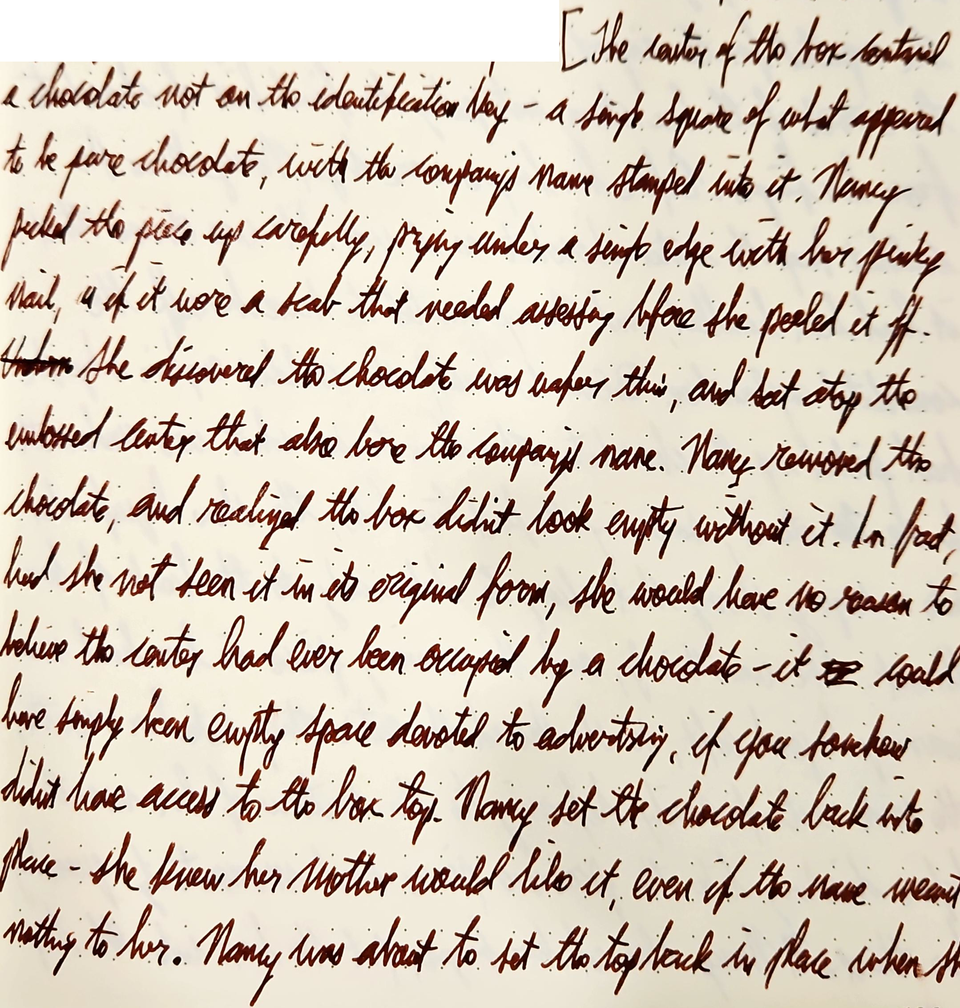 [The center of the box contained
a chocolate not on the identification key - a single square of what appeared
to be pure chocolate, with the company's name stamped into it. Nancy
picked the piece up carefully, prying under a single edge with her pinky
nail, as if it were a scab that needed assessing before she peeled it off.
She discovered the chocolate was wafer thin, and sat atop the
embossed center that also bore the company's name. Nancy removed the
chocolate, and realized the box didn't look empty without it. In fact,
had she not seen it in its original form, she would have no reason to
believe the center had ever been occupied by a chocolate - it could
have simply been empty space devoted to advertising, if you somehow
didn't have access to the box top. Nancy set the chocolate back into
place - she knew her mother would like it, even if the name meant
nothing to her. Nancy was about to set the top back in place when sh